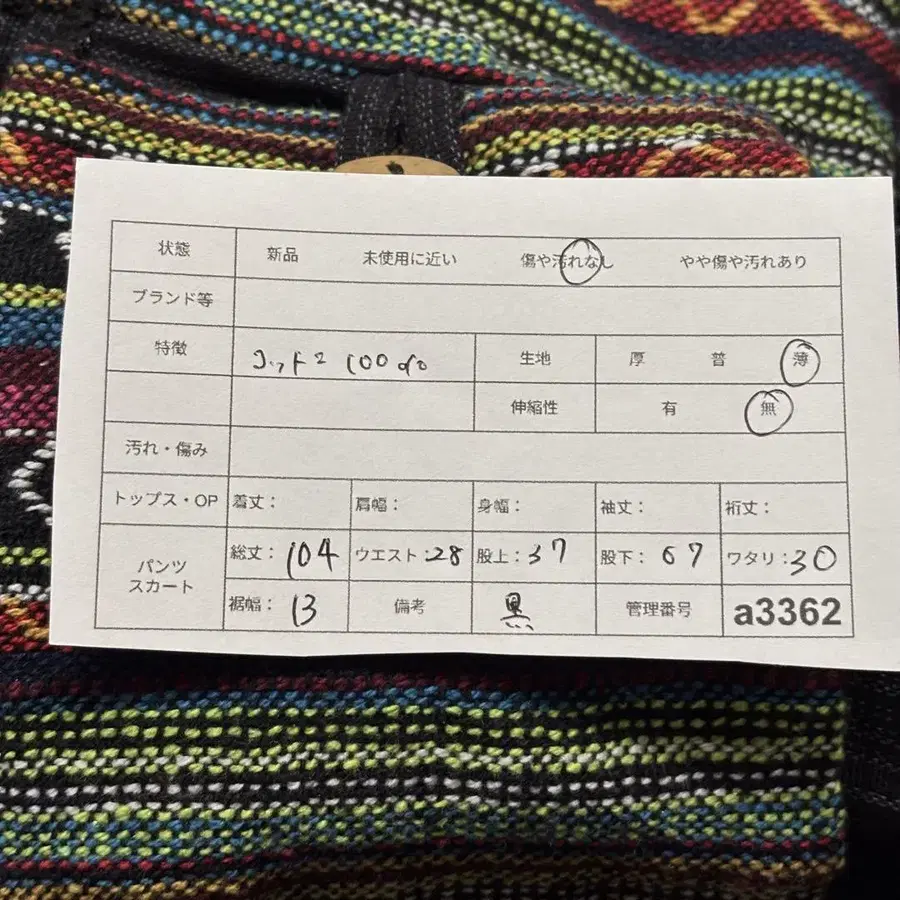 状態 新品 未使用に近い 傷や汚れなし やや傷や汚れあり
ブランド等
特徴 コットン 100% 生地 厚 普 薄
伸縮性 有 無
汚れ・傷み
トップス・OP 着丈: 肩幅: 身幅: 袖丈: 裄丈:
パンツ スカート 総丈: 104 ウエスト: 28 股上: 37 股下: 67 ワタリ: 30
裾幅: 13 備考 黒 管理番号 a3362